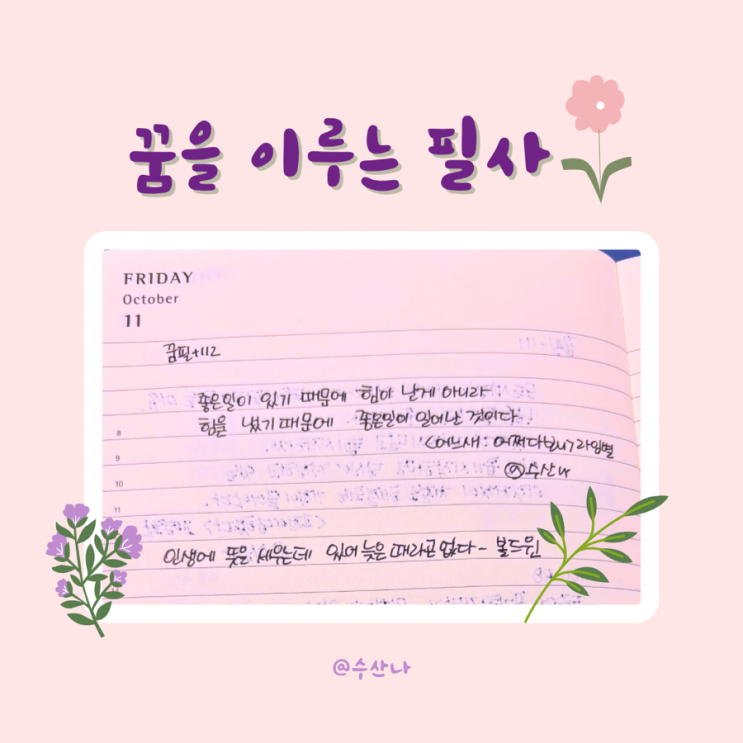 꿈을 이루는 필사
FRIDAY
October
11
꿈필+112
좋은일이 있기 때문에 힘이 난게 아니라
8
힘을 냈기때문에 좋은일이 일어난 것이다.
9
<어느새: 어쩌다보니> 라임별
10
@수산나
11
인생에 뜻을 세우는데 있어 늦은 때라곤 없다 - 볼드윈
@수산나